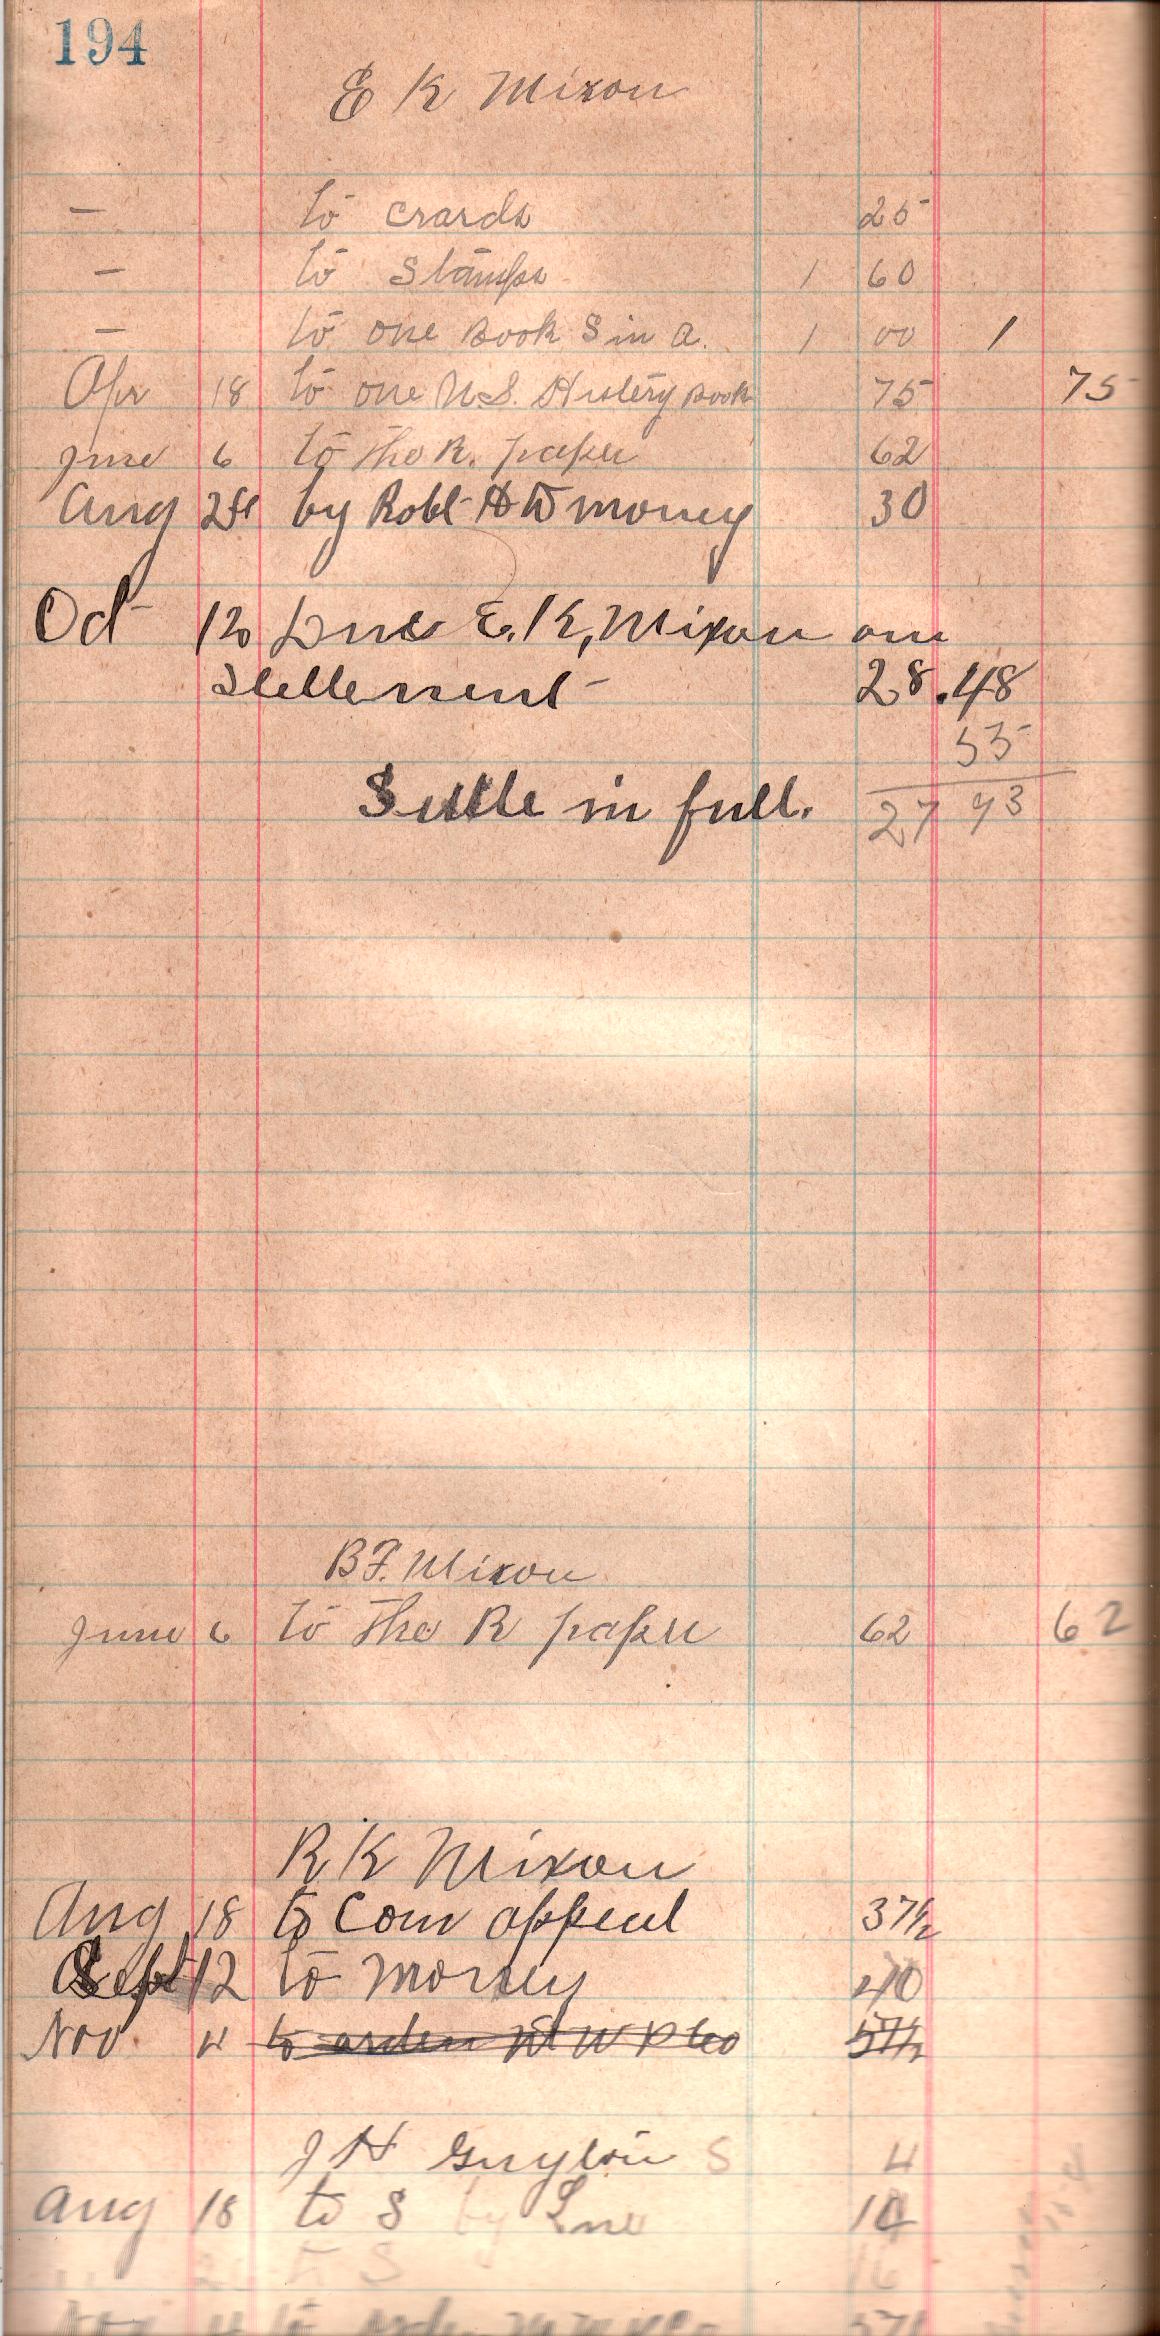 194
E K Mixon
— to crards 25
— to Stamps 1 60
— to one Book S in a. 1 00 1
Apr 18 to one U.S. Histery Book 75 75
June 6 to the R. paper 62
Aug by Robt money 30
Oct 12 Due E. K, Mixon on
Settlement 28.48
55
Settle in full. 27 93
B.F. Mixon
June 6 to the R paper 62 62
R K Mixon
Aug 18 to Com appeal 37½
Sept 12 to money 40
Nov 4 to order W P Co 57½
J H Guyton S 4
Aug 18 to S by 10
to S 16